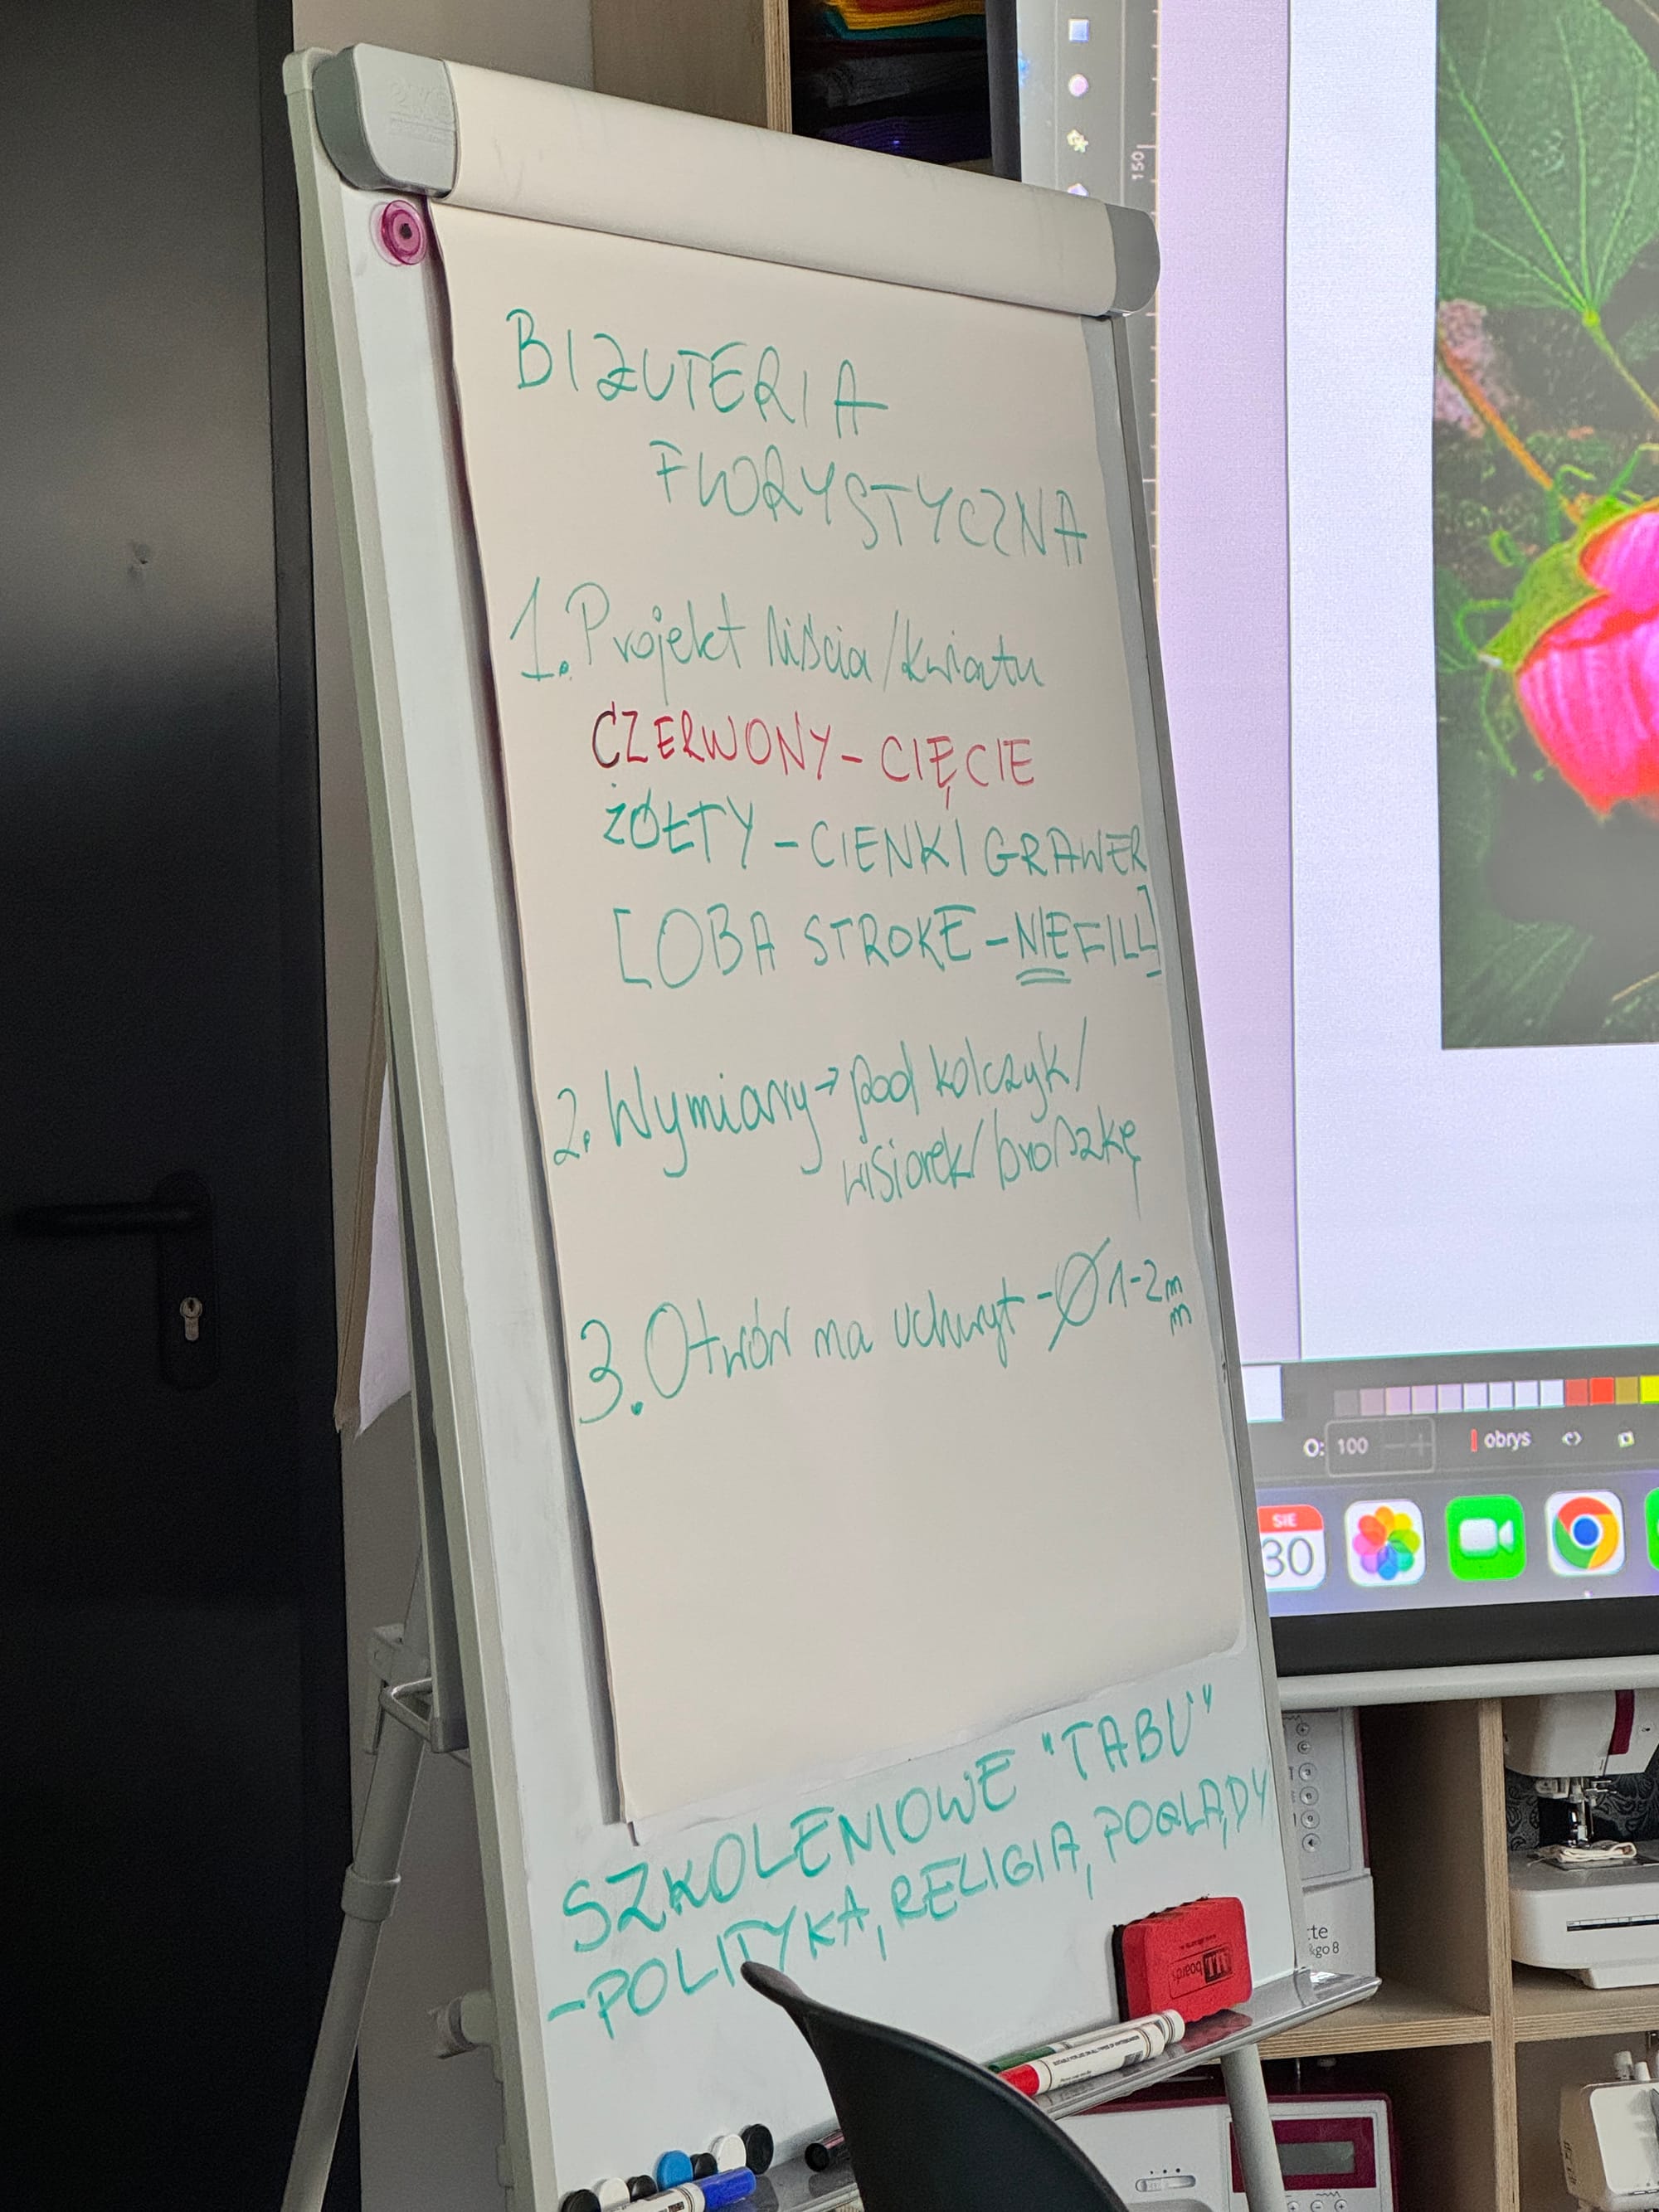 BIŻUTERIA
FLORYSTYCZNA
1. Projekt liścia/kwiatu
CZERWONY - CIĘCIE
ŻÓŁTY - CIENKI GRAWER
[OBA STROKE - NIE FILL]
2. Wymiary → pod kolczyk/
wisiorek/broszkę
3. Otwór na uchwyt - Ø 1-2 mm
SZKOLENIOWE "TABU"
- POLITYKA, RELIGIA, POGLĄDY
150
O: 100
obrys
SIE
30
boards
&go 8